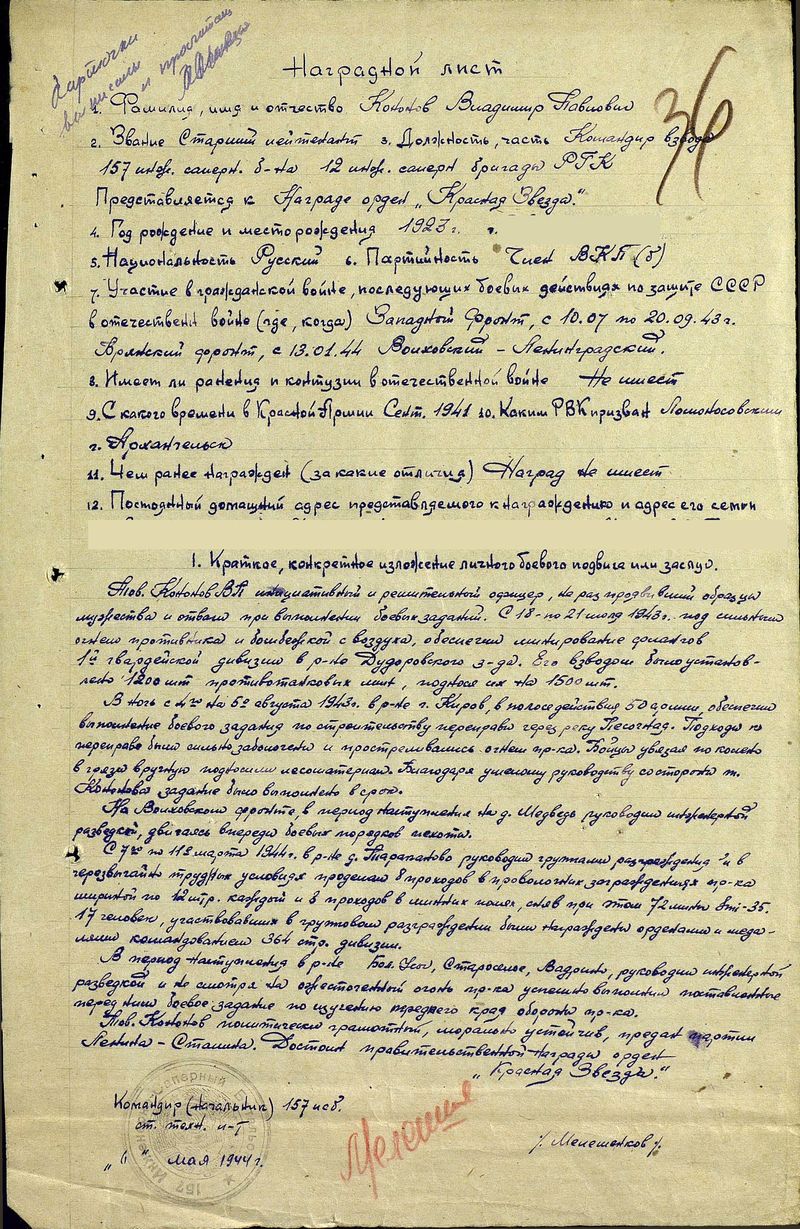 Карточки
выписаны
и прочитан
36
Наградной лист
1. Фамилия, имя и отчество Кононов Владимир Павлович
2. Звание Старший лейтенант 3. Должность, часть Командир взвода
157 инж. саперн. б-на 12 инж. саперн бригады РГК
Представляется к Награде орден „Красная Звезда."
4. Год рождение и место рождения 1923 г. г.
5. Национальность Русский 6. Партийность Член ВКП(б)
7. Участие в гражданской войне, последующих боевых действиях по защите СССР
в отечествен войне (где, когда) Западный Фронт, с 10.07 по 20.09.43 г.
Брянский фронт, с 13.01.44 Волховский – Ленинградский.
8. Имеет ли ранения и контузии в отечественной войне Не имеет
9. С какого времени в Красной Армии Сент. 1941 10. Каким РВК призван Ломоносовским
г. Архангельск
11. Чем ранее награжден (за какие отличия) Наград не имеет
12. Постоянный домашний адрес представляемого к награждению и адрес его семьи
1. Краткое, конкретное изложение личного боевого подвига или заслуг.
Тов. Кононов ВП инициативный и решительный офицер, не раз проявивший образцы
мужества и отваги при выполнении боевых заданий. С 18 - по 21 июля 1943г. под сильным
огнем противника и бомбежкой с воздуха, обеспечил минирование флангов
1й гвардейской дивизии в р-не Дудоровского з-да. Его взводом было установ-
лено 1200 шт противотанковых мин, поднося их на 1500 мт.
В ночь с 4го на 5е августа 1943г. в р-не г. Киров, в полосе действия 50 армии, обеспечил
выполнение боевого задания по строительству переправы через реку Песочная. Подходы к
переправе были сильно заболочены и простреливались огнем пр-ка. Бойцы увязая по колено
в грязи вручную подносили лесоматериал. Благодаря умелому руководству со стороны т.
Кононова задание было выполнено в срок.
На Волховском фронте, в период наступления на д. Медведь руководил инженерной
разведкой, двигаясь впереди боевых порядков пехоты.
С 7го по 11е марта 1944г. в р-не д. Тарапаново руководил группами разграждения и в
черезвычайно трудных условиях проделал 8 проходов в проволочных заграждениях пр-ка
шириной по 12 мтр. каждый и 8 проходов в минных полях, сняв при этом 72 мины ЯМ-35.
17 человек, участвовавших в групповом разграждении были награждены орденами и меда-
лями командованием 364 стр. дивизии.
В период наступления в р-не Бол. Усы, Староселье, Вадрино, руководил инженерной
разведкой и не смотря на ожесточенный огонь пр-ка успешно выполнил поставленные
перед ним боевое задание по изучению переднего края обороны пр-ка.
Тов. Кононов политически грамотный, морально устойчив, предан партии
Ленина – Сталина. Достоин правительственной награды орден
„Красная Звезда."
Командир (Начальник) 157 исб.
ст. техн. л-т
/. Мелешенков /.
„ " мая 1944 г.